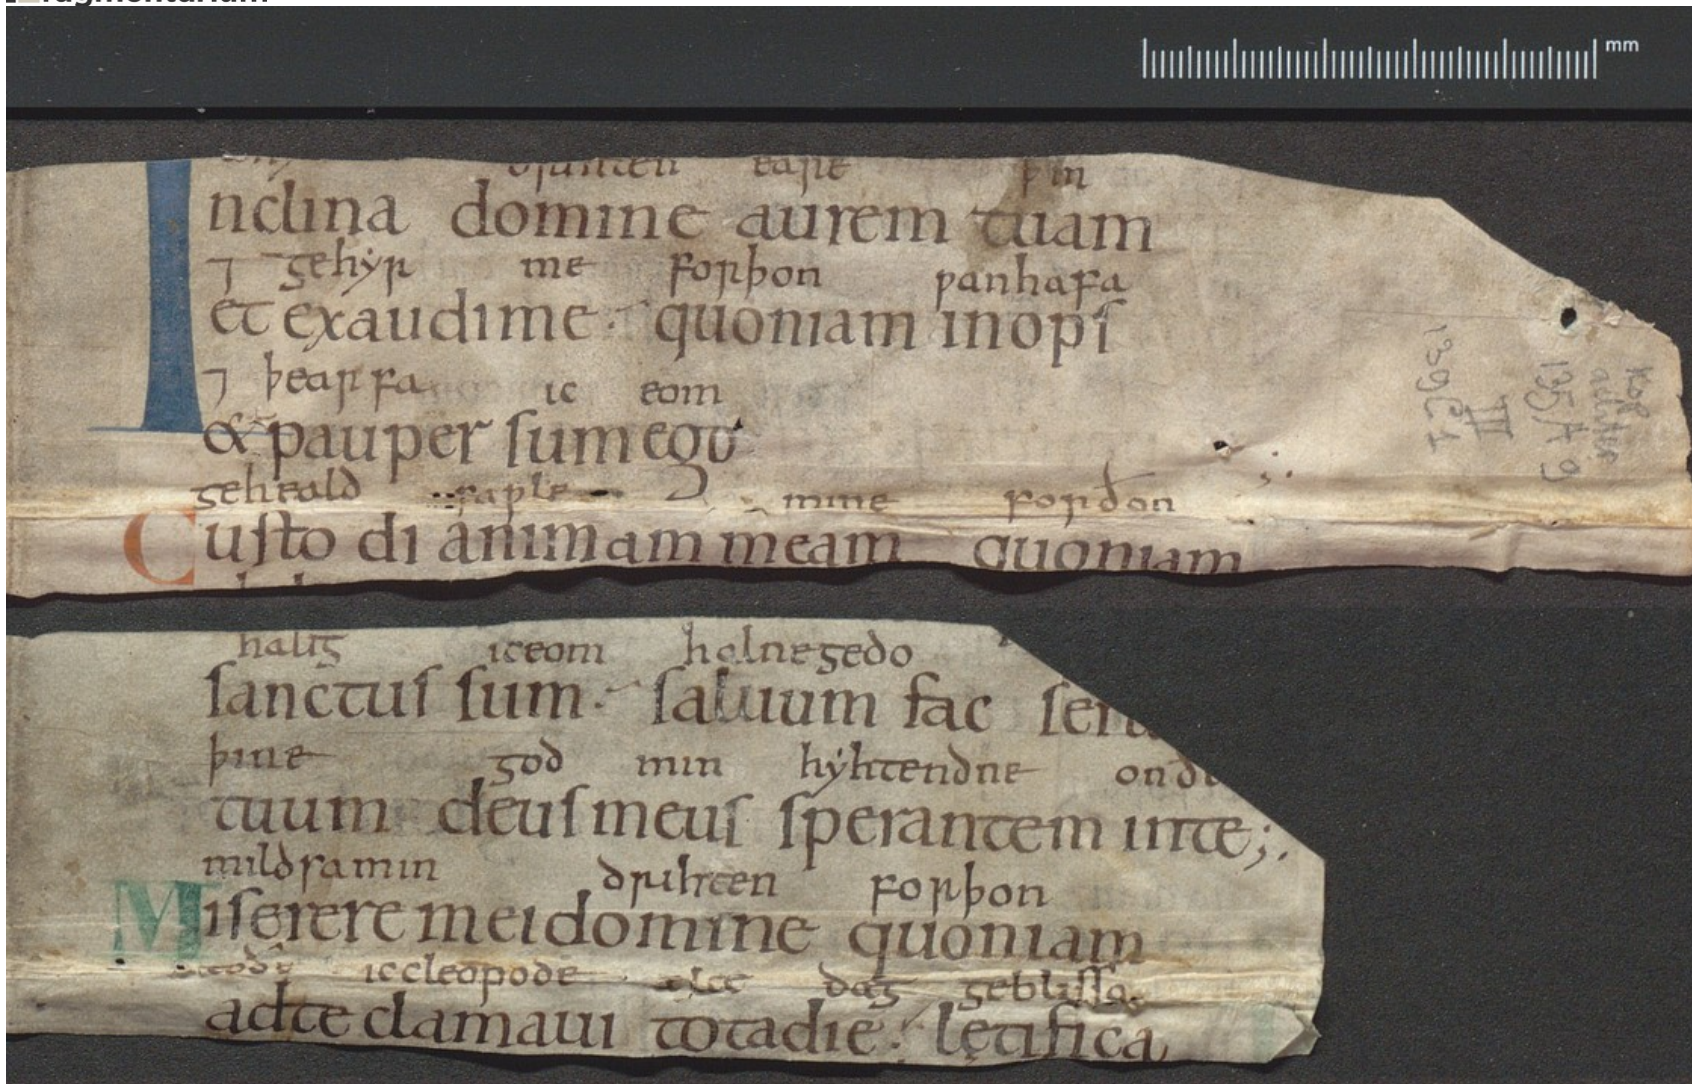 fragmentarium
mm
drihten eare þin
Inclina domine aurem tuam
⁊ gehẏr me forþon ƿanhafa
et exaudi me · quoniam inops
⁊ þearfa ic eom
& pauper sum ego
geheald saƿle mine forðon
Custodi animam meam quoniam
halig ic eom halne gedo
sanctus sum · saluum fac seru
þine god min hẏhtendne on ðe
tuum deus meus sperantem in te;.
mildsa min drihten forþon
Miserere mei domine quoniam
ic cleopode ælce dæg geblissa
ad te clamaui tota die · lętifica
139 C 1
III
135 A 9